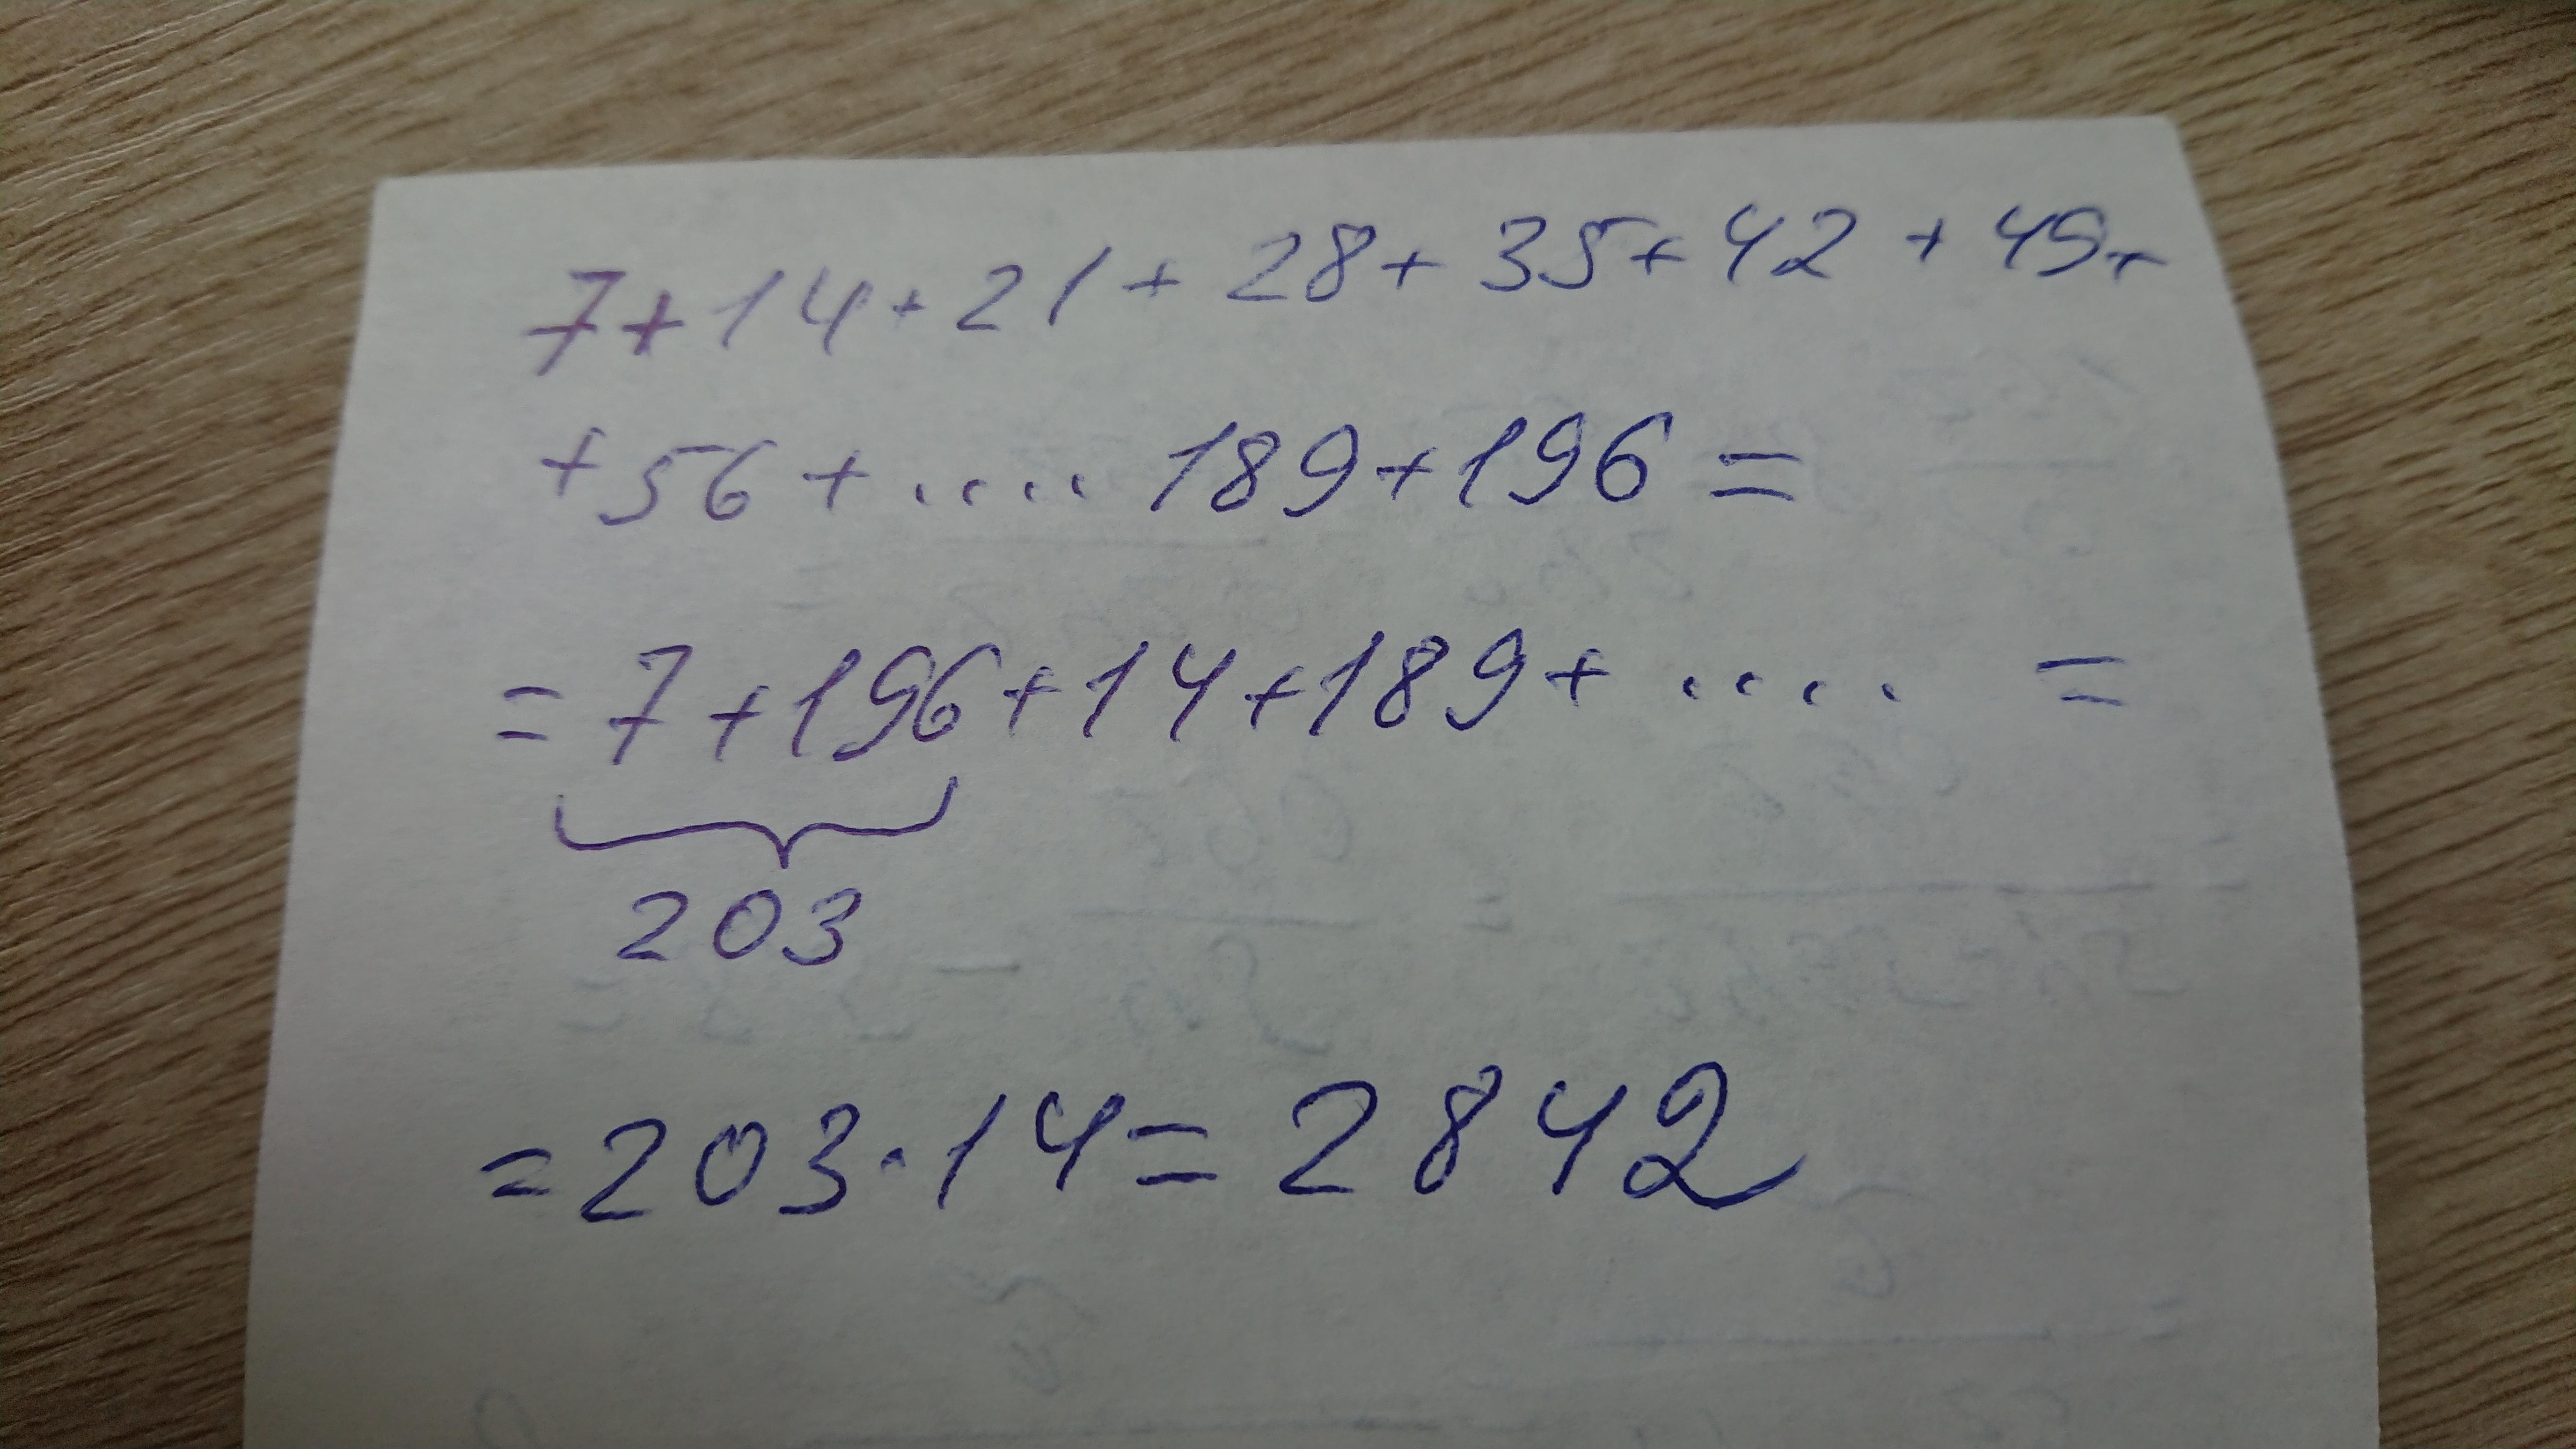 7+14+21+28+35+42+49+
+56+....189+196=
=7+196+14+189+.... =
203
=203·14=2842